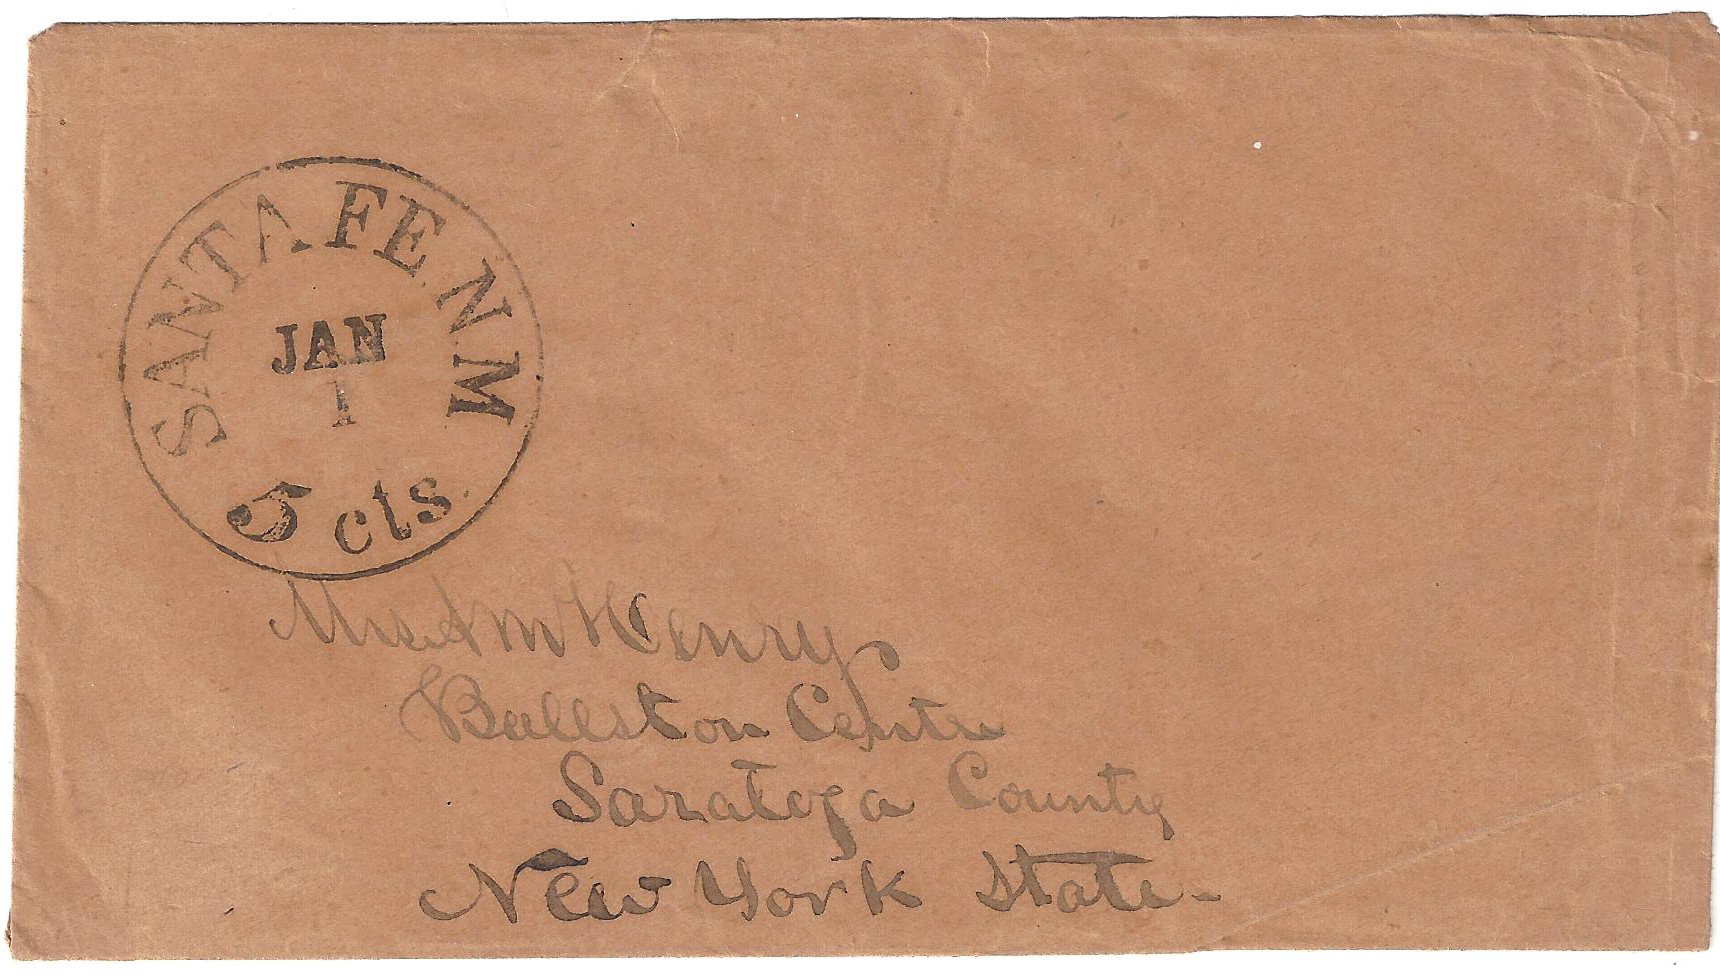 SANTA FE N M
JAN
1
5 cts
Mrs A M Henry
Ballston Centre
Saratoga County
New York State-